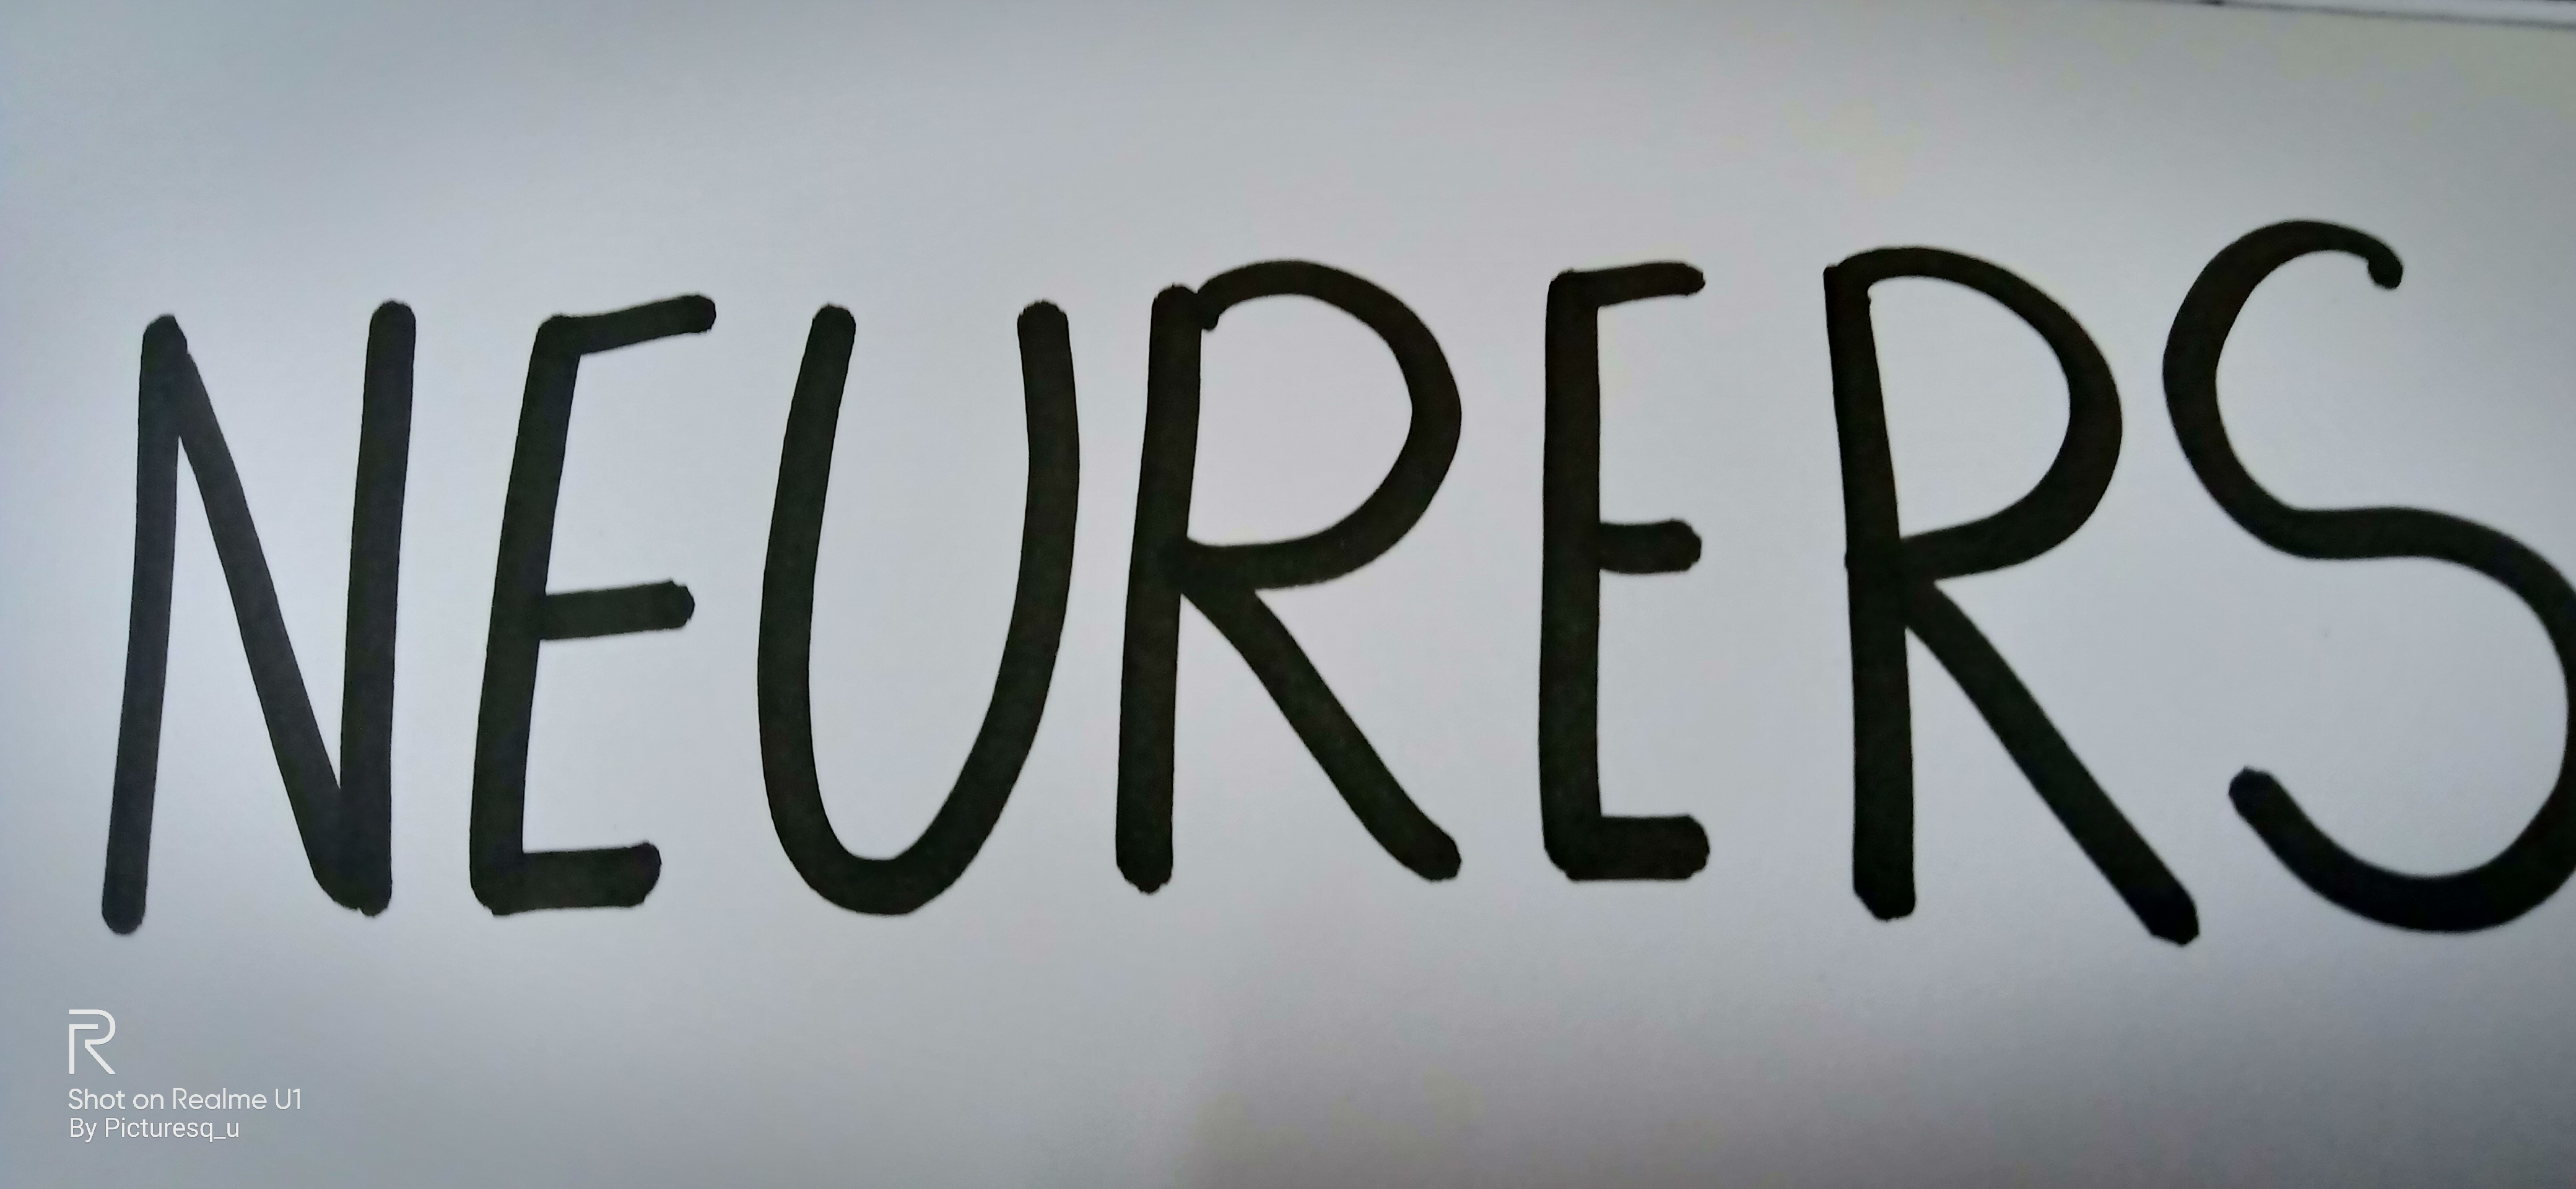 NEURERS
R
Shot on Realme U1
By Picturesq_u